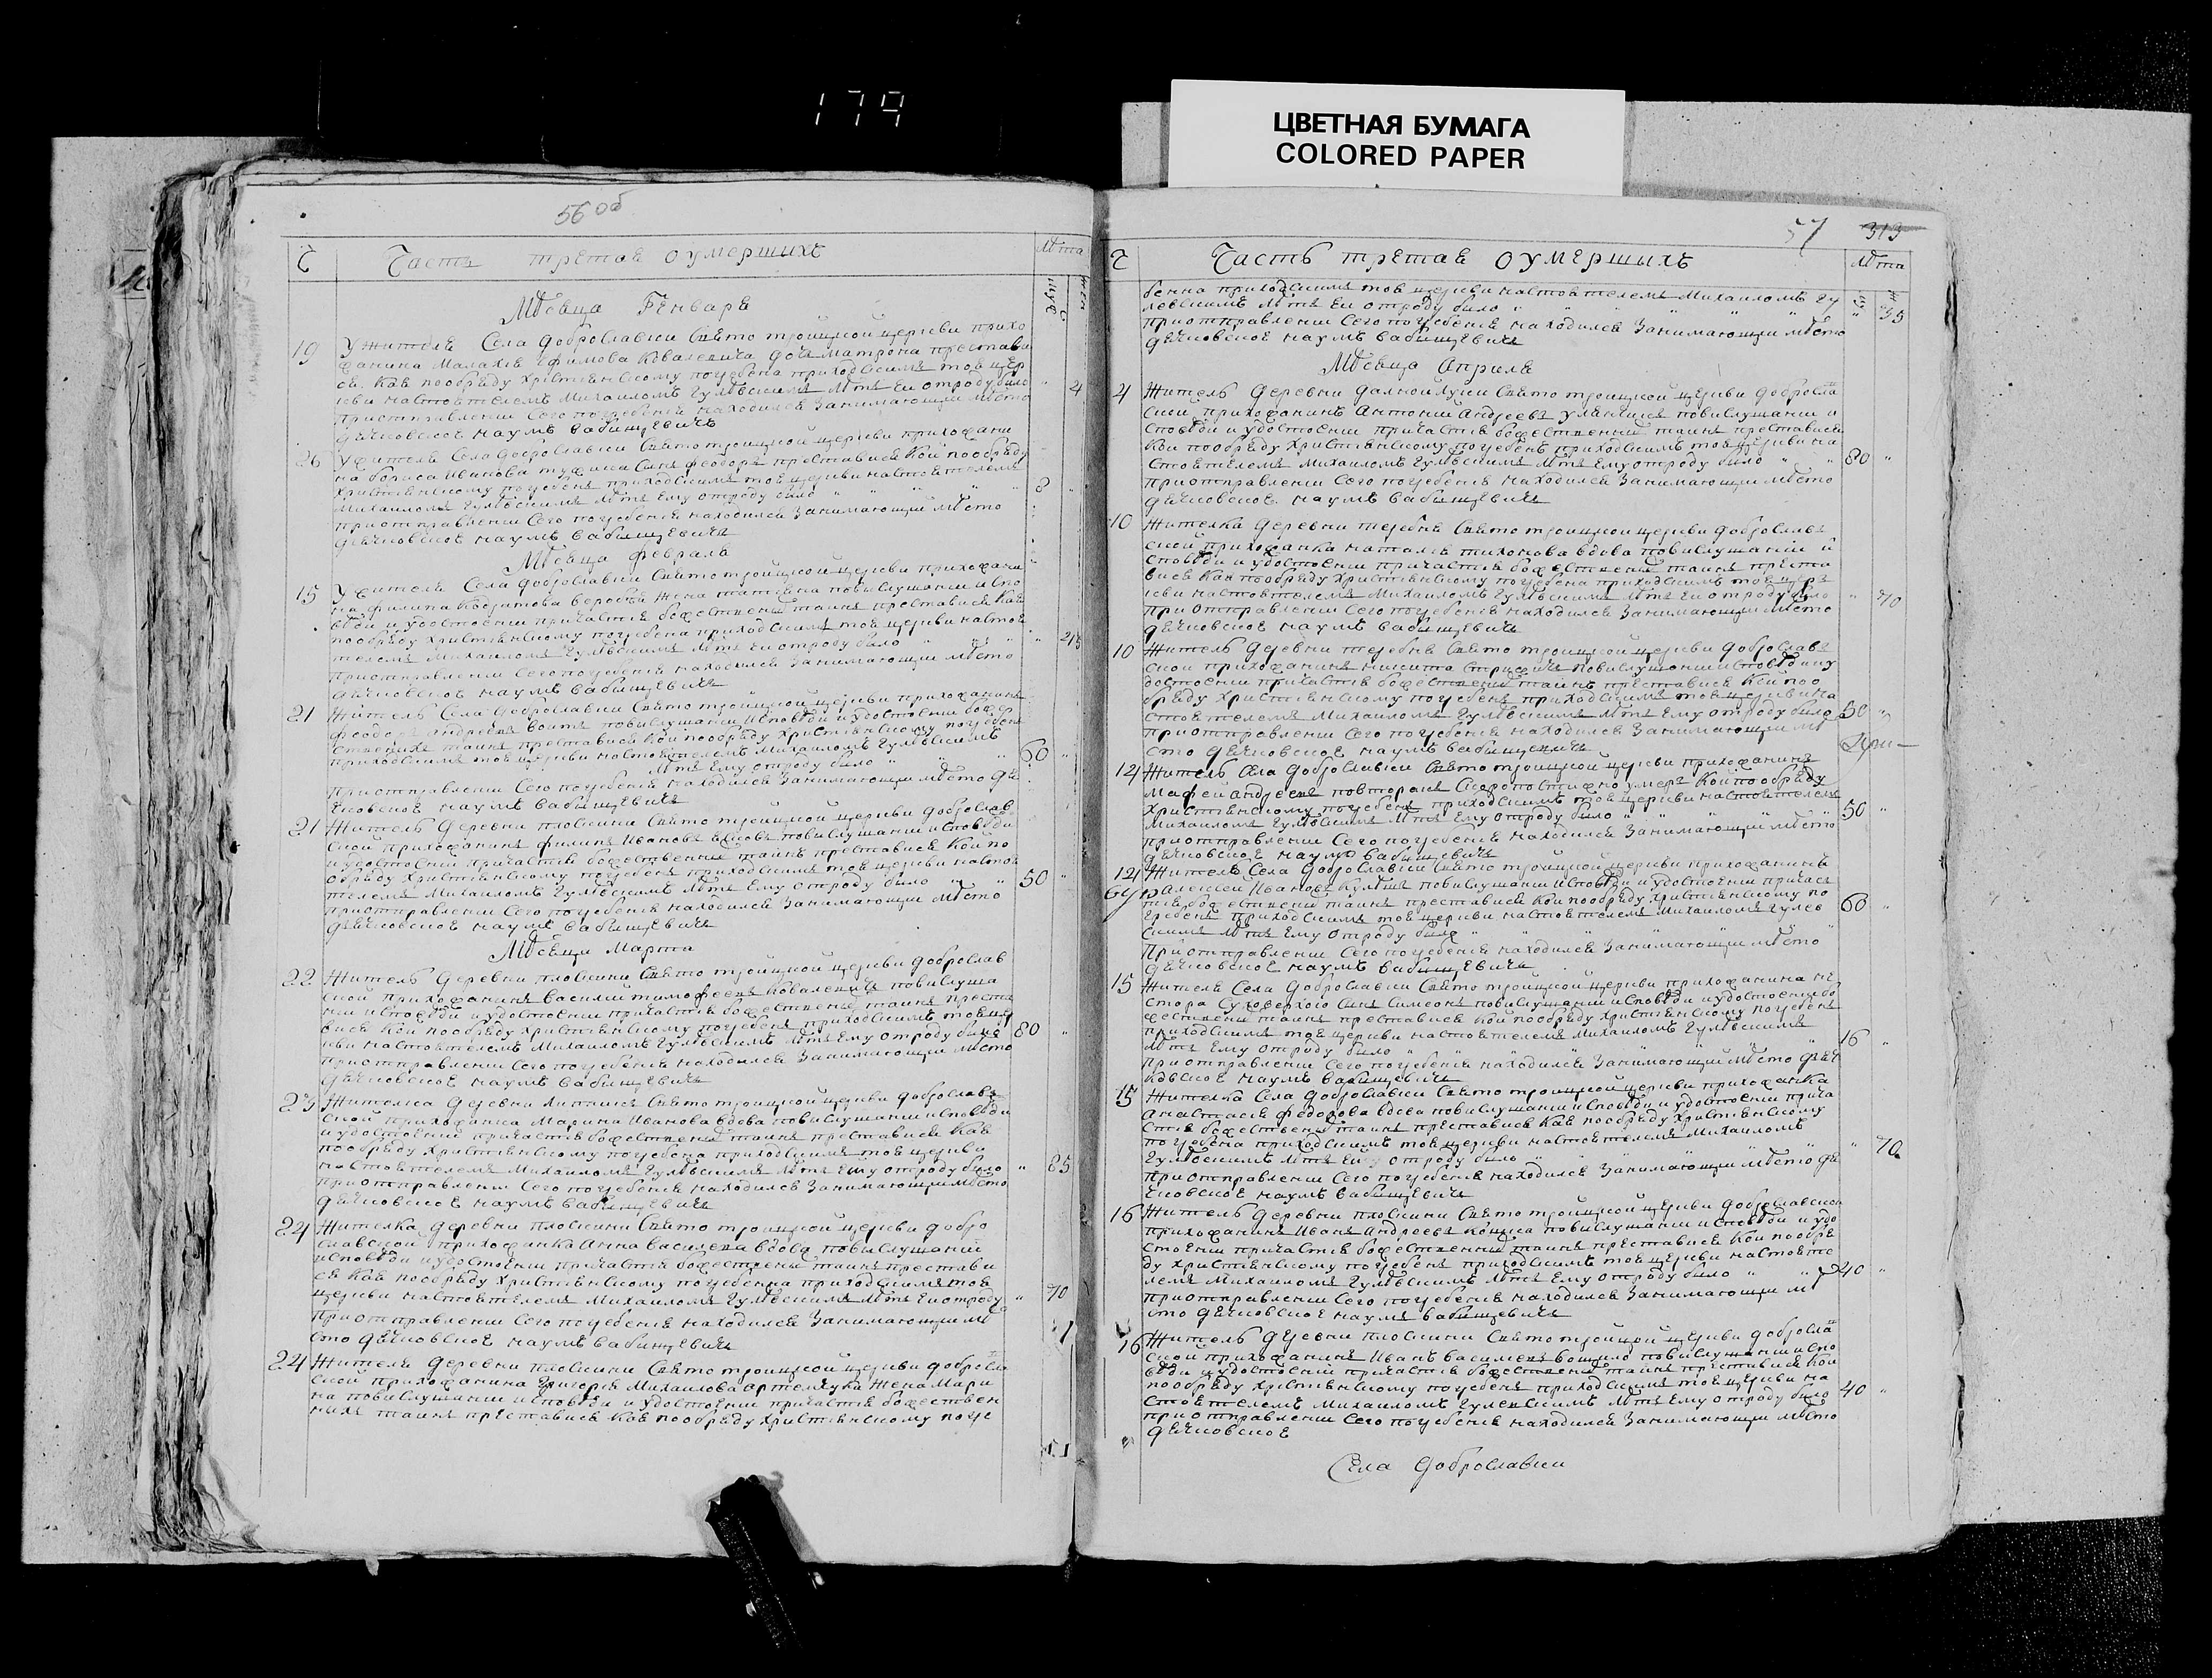 179
ЦВЕТНАЯ БУМАГА
COLORED PAPER
56 об
Ч Часть третая о умершыхъ Лѣта
муж жен
Мѣсеца Генваря
19 У жителя Села Доброславки Свято троицкой церкви прихо
жанина Малахія Ефимова Ковалевича дочь Матрона престави
ся, кая по обряду христіянскому погребена приходскимъ тоя цер
кви настоятелемъ Михаиломъ Гулѣвскимъ лѣтъ ей отроду было " 4
при отправленіи сего погребенія находился занимающій мѣсто
дячковское наумъ бабищевичъ
26 У жителя Села Доброславки Свято троицкой церкви прихожани
на бориса Иванова сынъ феодоръ преставися кой по обряду
христіянскому погребенъ приходскимъ тоя церкви настоятелемъ
Михаиломъ Гулѣвскимъ лѣтъ ему отроду было " " " 8 "
при отправленіи сего погребенія находился занимающій мѣсто
дячковское наумъ бабищевичъ
Мѣсеца февраля
15 У жителя Села Доброславки Свято троицкой церкви прихожани
на филипа жена татіяна по выслушаніи испо
вѣди и удостоеніи причастія божественныхъ таинъ преставися кая
по обряду христіянскому погребена приходскимъ тоя церкви настоя
телемъ Михаиломъ Гулѣвскимъ лѣтъ ей отроду было " " "
при отправленіи сего погребенія находился занимающій мѣсто
дячковское наумъ бабищевичъ
21 Житель Села Доброславки Свято троицкой церкви прихожанинъ
феодоръ андреевъ по выслушаніи исповѣди и удостоеніи боже
ственныхъ таинъ преставися кой по обряду христіянскому погребенъ
приходскимъ тоя церкви настоятелемъ Михаиломъ Гулѣвскимъ
лѣтъ ему отроду было " " 60 "
при отправленіи сего погребенія находился занимающій мѣсто дя
чковское наумъ бабищевичъ
21 Житель Деревни плоскини Свято троицкой церкви доброслав
ской прихожанинъ филипъ Ивановъ по выслушаніи исповѣди
и удостоеніи причастія божественныхъ таинъ преставися кой по
обряду христіянскому погребенъ приходскимъ тоя церкви настоя
телемъ Михаиломъ Гулѣвскимъ лѣтъ ему отроду было " " 50 "
при отправленіи сего погребенія находился занимающій мѣсто
дячковское наумъ бабищевичъ
Мѣсеца Марта
22 Житель Деревни плоскини Свято троицкой церкви доброслав
ской прихожанинъ василій тимофеевъ Ковалевичъ по выслуша
ніи исповѣди и удостоеніи причастія божественныхъ таинъ преста
вися кой по обряду христіянскому погребенъ приходскимъ тоя цер
кви настоятелемъ Михаиломъ Гулѣвскимъ лѣтъ ему отроду было 80 "
при отправленіи сего погребенія находился занимающій мѣсто
дячковское наумъ бабищевичъ
23 Жителка деревни Свято троицкой церкви доброслав
ской прихожанка Марина Иванова вдова по выслушаніи исповѣди
и удостоеніи причастія божественныхъ таинъ преставися кая
по обряду христіянскому погребена приходскимъ тоя церкви
настоятелемъ Михаиломъ Гулѣвскимъ лѣтъ ему отроду было " 85
при отправленіи сего погребенія находился занимающій мѣсто
дячковское наумъ бабищевичъ
24 Жителка деревни плоскини Свято троицкой церкви добро
славской прихожанка Анна василева вдова по выслушаніи
исповѣди и удостоеніи причастія божественныхъ таинъ престави
ся кая по обряду христіянскому погребенна приходскимъ тоя
церкви настоятелемъ Михаиломъ Гулѣвскимъ лѣтъ ей отроду " 70
при отправленіи сего погребенія находился занимающій мѣ
сто дячковское наумъ бабищевичъ
24 Жителя деревни плоскини Свято троицкой церкви добросла
ской прихожанина Григорія Михаилова артемчука жена Мари
на по выслушаніи исповѣди и удостоеніи причастія божествен
ныхъ таинъ преставися кая по обряду христіянскому погре
57 313
Ч Часть третая о умершыхъ Лѣта
бенна приходскимъ тоя церкви настоятелемъ Михаиломъ Гу
левскимъ лѣтъ ей отроду было " " " " " 35
при отправленіи сего погребенія находился занимающій мѣсто
дячковское наумъ бабищевичъ
Мѣсеца Априля
4 Житель деревни далной Луки Свято троицкой церкви добросла
ской прихожанинъ Антоній Андреевъ по выслушаніи и
сповѣди и удостоеніи причастія божественныхъ таинъ преставися
кой по обряду христіянскому погребенъ приходскимъ тоя церкви на
стоятелемъ Михаиломъ Гулѣвскимъ лѣтъ ему отроду было " " 80 "
при отправленіи сего погребенія находился занимающій мѣсто
дячковское наумъ бабищевичъ
10 Жителка деревни теребня Свято троицкой церкви доброслав
ской прихожанка наталія тихонова вдова по выслушаніи и
сповѣди и удостоеніи причастія божественныхъ таинъ преста
вися кая по обряду христіянскому погребена приходскимъ тоя цер
кви настоятелемъ Михаиломъ Гулѣвскимъ лѣтъ ей отроду было " 70
при отправленіи сего погребенія находился занимающій мѣсто
дячковское наумъ бабищевичъ
10 Житель деревни теребня Свято троицкой церкви доброслав
ской прихожанинъ никита по выслушаніи исповѣди и у
достоеніи причастія божественныхъ таинъ преставися кой по о
бряду христіянскому погребенъ приходскимъ тоя церкви на
стоятелемъ Михаиломъ Гулѣвскимъ лѣтъ ему отроду было 50 "
при отправленіи сего погребенія находился занимающій мѣ
сто дячковское наумъ бабищевичъ
12 Житель Села Доброславки Свято троицкой церкви прихожанинъ
Мафей андреевъ скоропостижно умеръ кой по обряду
христіянскому погребенъ приходскимъ тоя церкви настоятелемъ
Михаиломъ Гулѣвскимъ лѣтъ ему отроду было " " " 50 "
при отправленіи сего погребенія находился занимающій мѣсто
дячковское наумъ бабищевичъ
12 Житель Села Доброславки Свято троицкой церкви прихожанинъ
Алексей Ивановъ по выслушаніи исповѣди и удостоеніи причас
тія божественныхъ таинъ преставися кой по обряду христіянскому по
гребенъ приходскимъ тоя церкви настоятелемъ Михаиломъ Гулев 60 "
скимъ лѣтъ ему отроду было " " " "
при отправленіи сего погребенія находился занимающій мѣсто
дячковское наумъ бабищевичъ
15 Жителя Села Доброславки Свято троицкой церкви прихожанина не
стора Суховерхого сынъ Симеонъ по выслушаніи исповѣди и удостоеніи бо
жественныхъ таинъ преставися кой по обряду христіянскому погребенъ
приходскимъ тоя церкви настоятелемъ Михаиломъ Гулѣвскимъ
лѣтъ ему отроду было " " " " " 16 "
при отправленіи сего погребенія находился занимающій мѣсто дяч
ковское наумъ бабищевичъ
15 Жителка Села Доброславки Свято троицкой церкви прихожанка
Анастасія федорова вдова по выслушаніи исповѣди и удостоеніи прича
стія божественныхъ таинъ преставися кая по обряду христіянскому
погребена приходскимъ тоя церкви настоятелемъ Михаиломъ
Гулѣвскимъ лѣтъ ей отроду было " " " " " 70
при отправленіи сего погребенія находился занимающій мѣсто дя
чковское наумъ бабищевичъ
16 Житель деревни плоскини Свято троицкой церкви доброславской
прихожанинъ Иванъ Андреевъ по выслушаніи исповѣди и удо
стоеніи причастія божественныхъ таинъ преставися кой по обря
ду христіянскому погребенъ приходскимъ тоя церкви настояте
лемъ Михаиломъ Гулѣвскимъ лѣтъ ему отроду было " " 40 "
при отправленіи сего погребенія находился занимающій мѣ
сто дячковское наумъ бабищевичъ
16 Житель деревни плоскини Свято троицкой церкви добросла
ской прихожанинъ Иванъ василевъ по выслушаніи испо
вѣди и удостоеніи причастія божественныхъ таинъ преставися кой
по обряду христіянскому погребенъ приходскимъ тоя церкви на
стоятелемъ Михаиломъ Гулевскимъ лѣтъ ему отроду было 40 "
при отправленіи сего погребенія находился занимающій мѣсто
дячковское
Села Доброславки